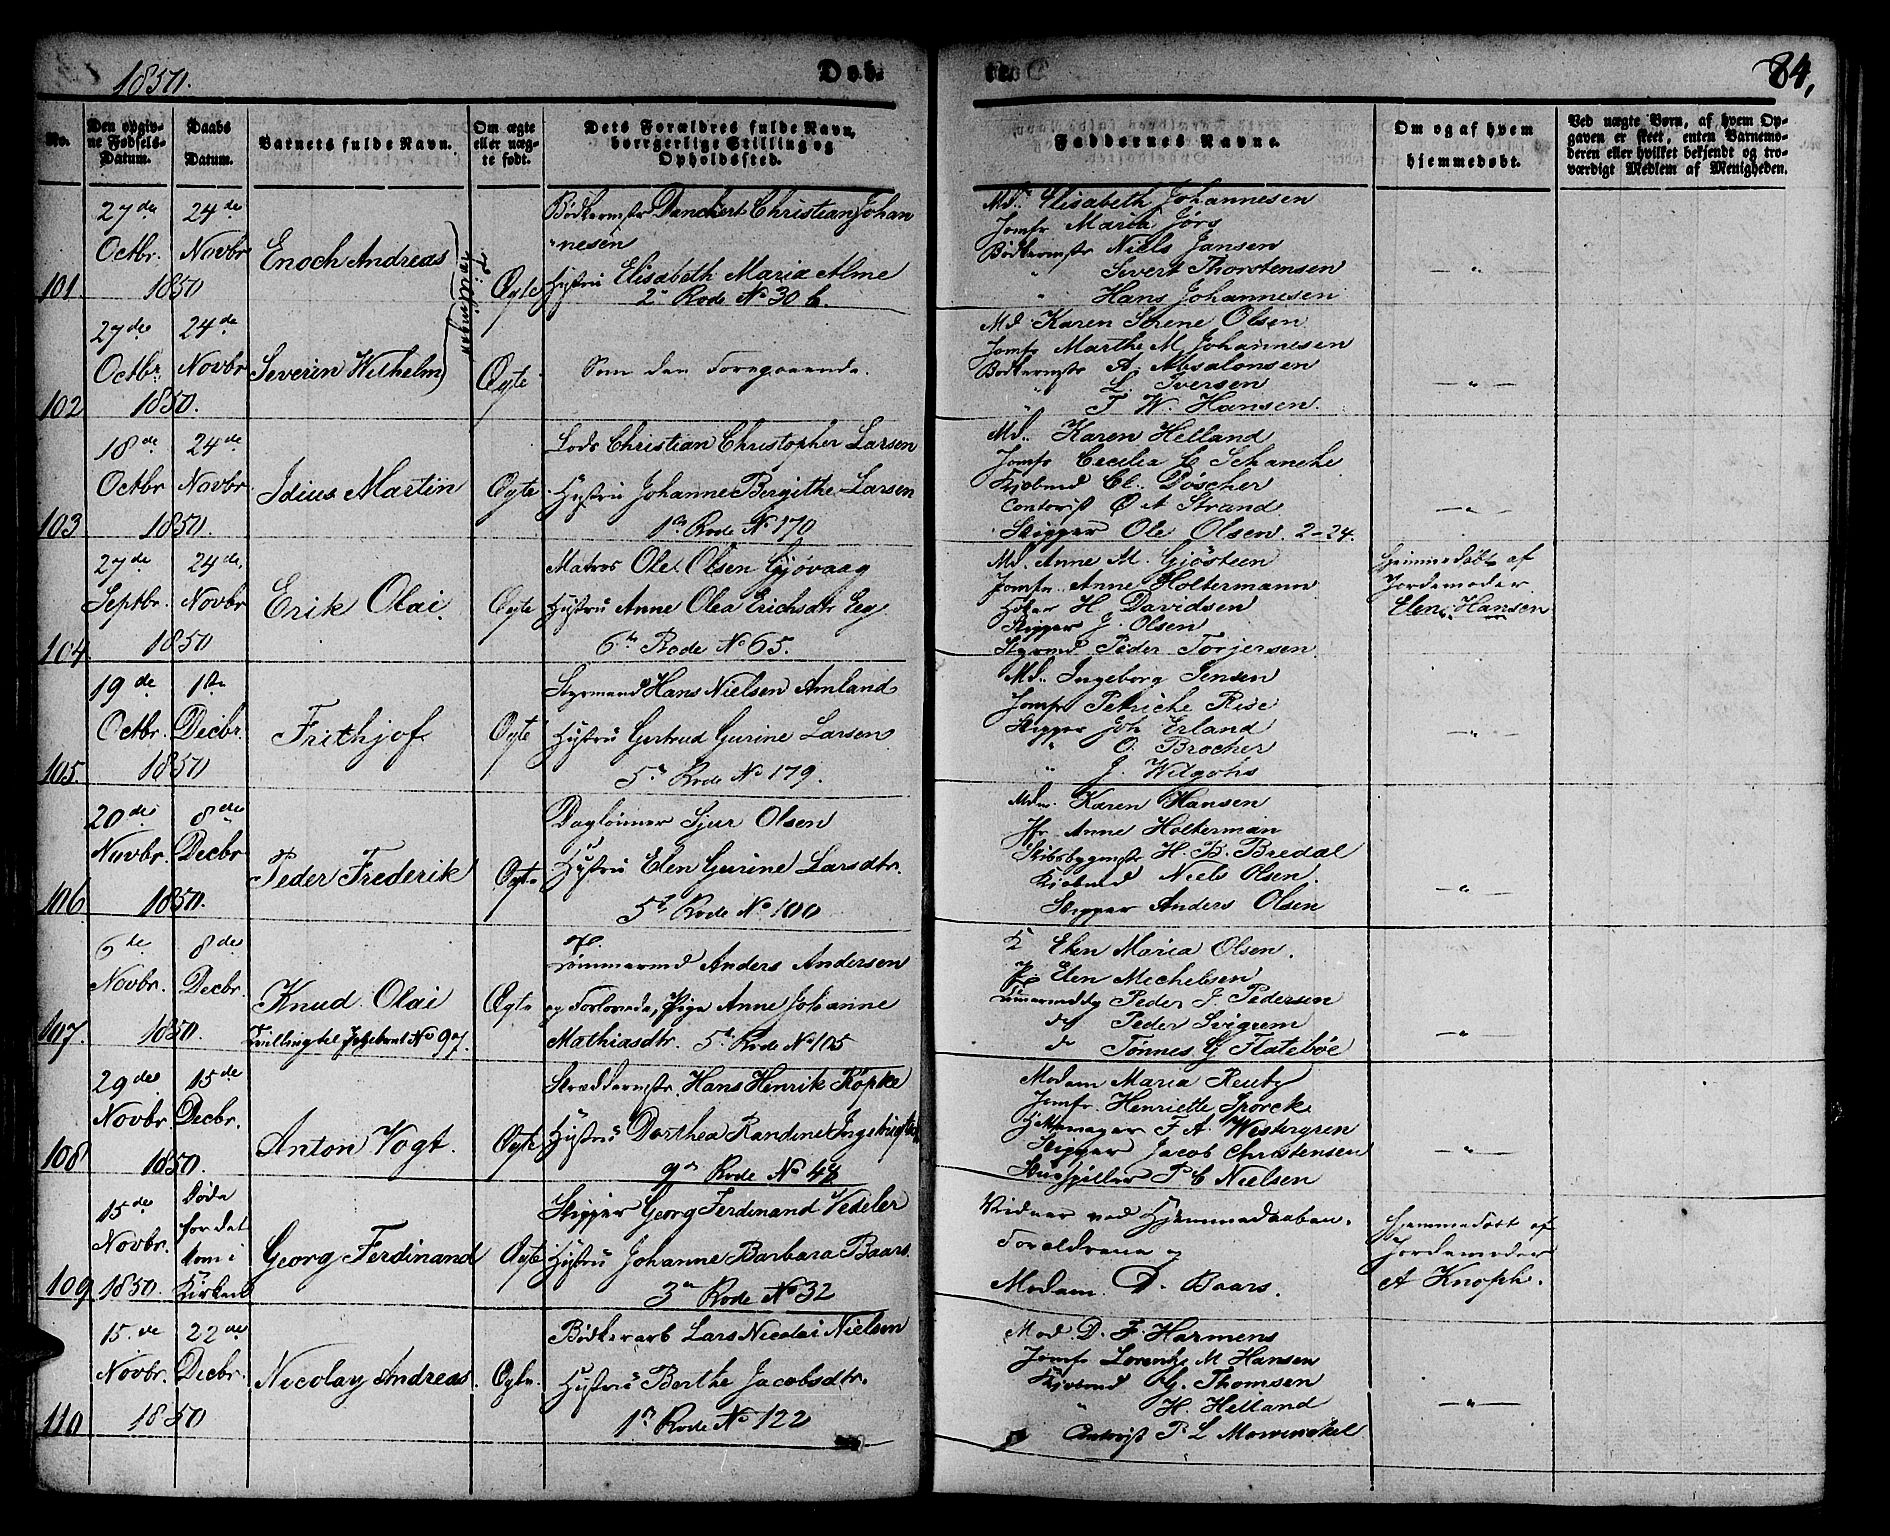 1850.
Døb-
te.
84,
No.
Den opgiv-
ne Fødsels-
Datum.
Daabs
Datum.
Barnets fulde Navn.
Om ægte
eller uæg-
te født.
Dets Forældres fulde Navn,
borgerlige Stilling og
Opholdssted.
Faddernes Navne.
Om og af hvem
hjemmedøbt.
Ved uægte Børn, af hvem Op-
gaven er skeet, enten Barnemo-
deren eller hvilket bekjendt og tro-
værdigt Medlem af Menigheden.
101
27de
Octbr.
24de
Novbr
1850
Enoch Andreas
Tvillinger
Ægte
Bødkermstr Danchert Christian Johan
nesen
Hustru Elisabeth Maria Alme
2 Rode No 30 b.
Md. Elisabeth Johannesen
Jomfr Maria Jørs
Bødkermstr Niels Jansen
" Severt Thorstensen
" Hans Johannesen
— " —
102
27de
Octbr.
24de
Novbr
1850.
Severin Wilhelm
Ægte
Som den Foregaaende.
Md. Karen Serene Olsen
Jomfr Marthe M Johannesen
Bødkermstr A. Absalonsen
" L. Iversen
" T W. Hansen.
— " —
103
18de
Octbr
24de
Novbr.
1850.
Idius Martin
Ægte
Lods Christian Christopher Larsen
Hustru Johanne Bergithe Larsen
1te Rode No 170
Md. Karen Helland
Jomfr Cecilia C Schanche
Kjøbmd Cl. Døscher
Contorist Ø A Strand
Skipper Ole Olsen 2-24.
— " —
104.
27de
Septbr.
24de.
Novbr
1850
Erik Olai.
Ægte
Matros Ole Olsen Gjøvaag
Hustru Anne Olea Erichsdtr Eeg
6te Rode No 65.
Md. Anne M. Gjøsteen
Jomfr. Anne Holtermann
H Davidsen
Skipper J. Olsen
Styrmd Peder Torjersen
Hjemmedøbt af
Jordemoder
Elen Hansen
105.
19de
Octbr.
1te
Decbr.
1850
Frithjof
Ægte
Styrmand Hans Nielsen Amland
Hustru Gertrud Gurine Larsen
5te Rode No 179.
Md. Ingeborg Jensen
Jomfr Petriche Rise
Skipper Joh Erland
" O. Brocher
" J. Wilgohs
— " —
106
20de
Novbr.
8de
Decbr
1850.
Peder Frederik
Ægte
Dagleiner Sjur Olsen
Hustru Elen Gurine Larsdtr.
5te Rode No 100
Mdm. Karen Hansen
Jfr Anne Holterman
Skibsbygmstr H. B. Bredal
Kjøbmd Niels Olsen.
Skipper Anders Olsen
— " —
107.
6de
Novbr.
8de
Decbr.
1850.
Knud Olai
Tvilling til No 97.
Ægte
Tømmermd Anders Andersen
og Forlovede, Pige Anne Johanne
Mathiasdtr. 5te Rode No 105
K Elen Maria Olsen.
P. Elen Michelsen
Tømmermd Peder J. Pedersen
do Peder Svigrem
do Tønnes G Flatebøe
— " —
108
29de
Novbr
15de
Decbr.
1850.
Anton Vogt.
Ægte
Skreddermstr. Hans Henrik Köpke
Hustru Dorthea Randine
9de Rode No 48
Modam Maria Reutz
Jomfr. Henriette Sporck
F A Westergren
Skipper Jacob Christensen
Skuespiller P C Nielsen
— " —
109
15de
Novbr.
1850.
Døde
før det
kom i
Kirken
Georg Ferdinand
Ægte
Skipper Georg Ferdinand Vedeler
Hustru Johanne Barbara Baars.
3de Rode No 32
Vidner ved Hjemmedaaben.
Forældrene og
Modam D. Baars.
Hjemmedøbt af
Jordemoder
A Knoph.
110
15.de
Novbr.
22de
Decbr.
1850
Nicolay Andreas.
Ægte.
Bødkerarb Lars Nicolai Nielsen
Hustru Berthe Jacobsdtr.
1te Rode No 122
Mod D. F. Harmens
Jomfr Lorentze M Hansen
Kjøbmd G. Thomsen
" H. Helland
Contorist P. L Mowinckel
— " —